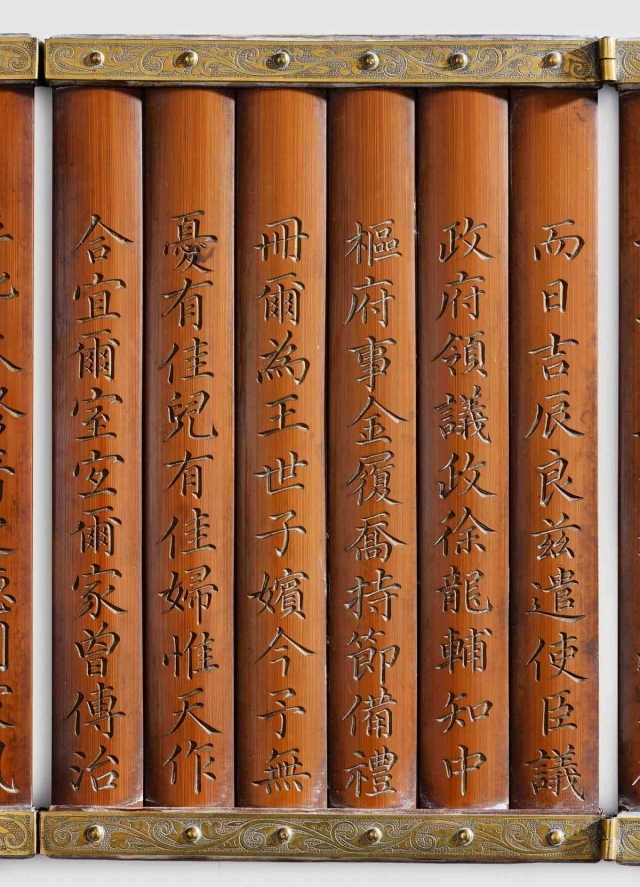 而日吉辰良兹遣使臣議
政府領議政徐龍輔知中
樞府事金履喬持節備禮
冊爾為王世子嬪今予無
憂有佳兒有佳婦惟天作
合宜爾室宐爾家曽傳治